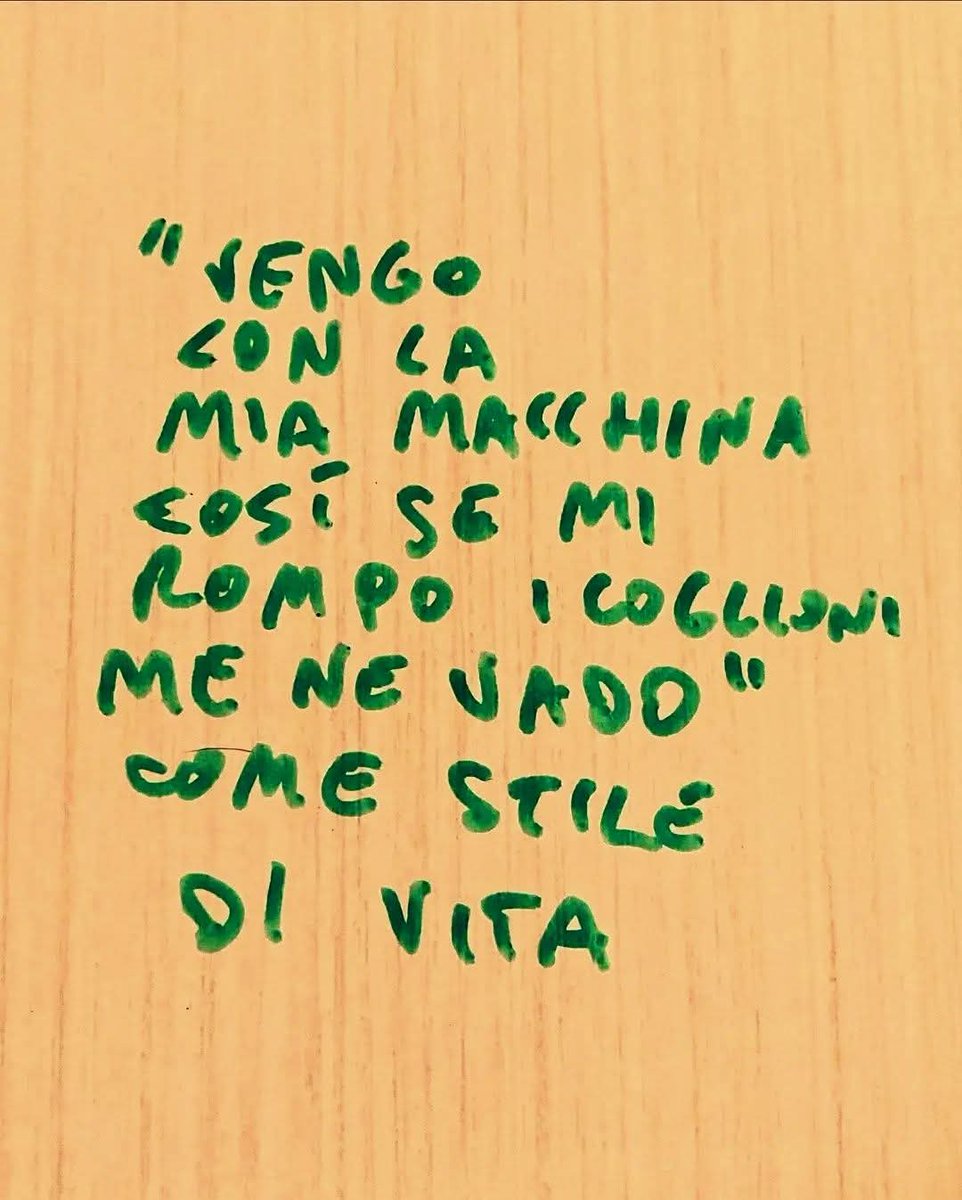 "VENGO
CON LA
MIA MACCHINA
COSÍ SE MI
ROMPO I COGLIONI
ME NE VADO"
COME STILE
DI VITA